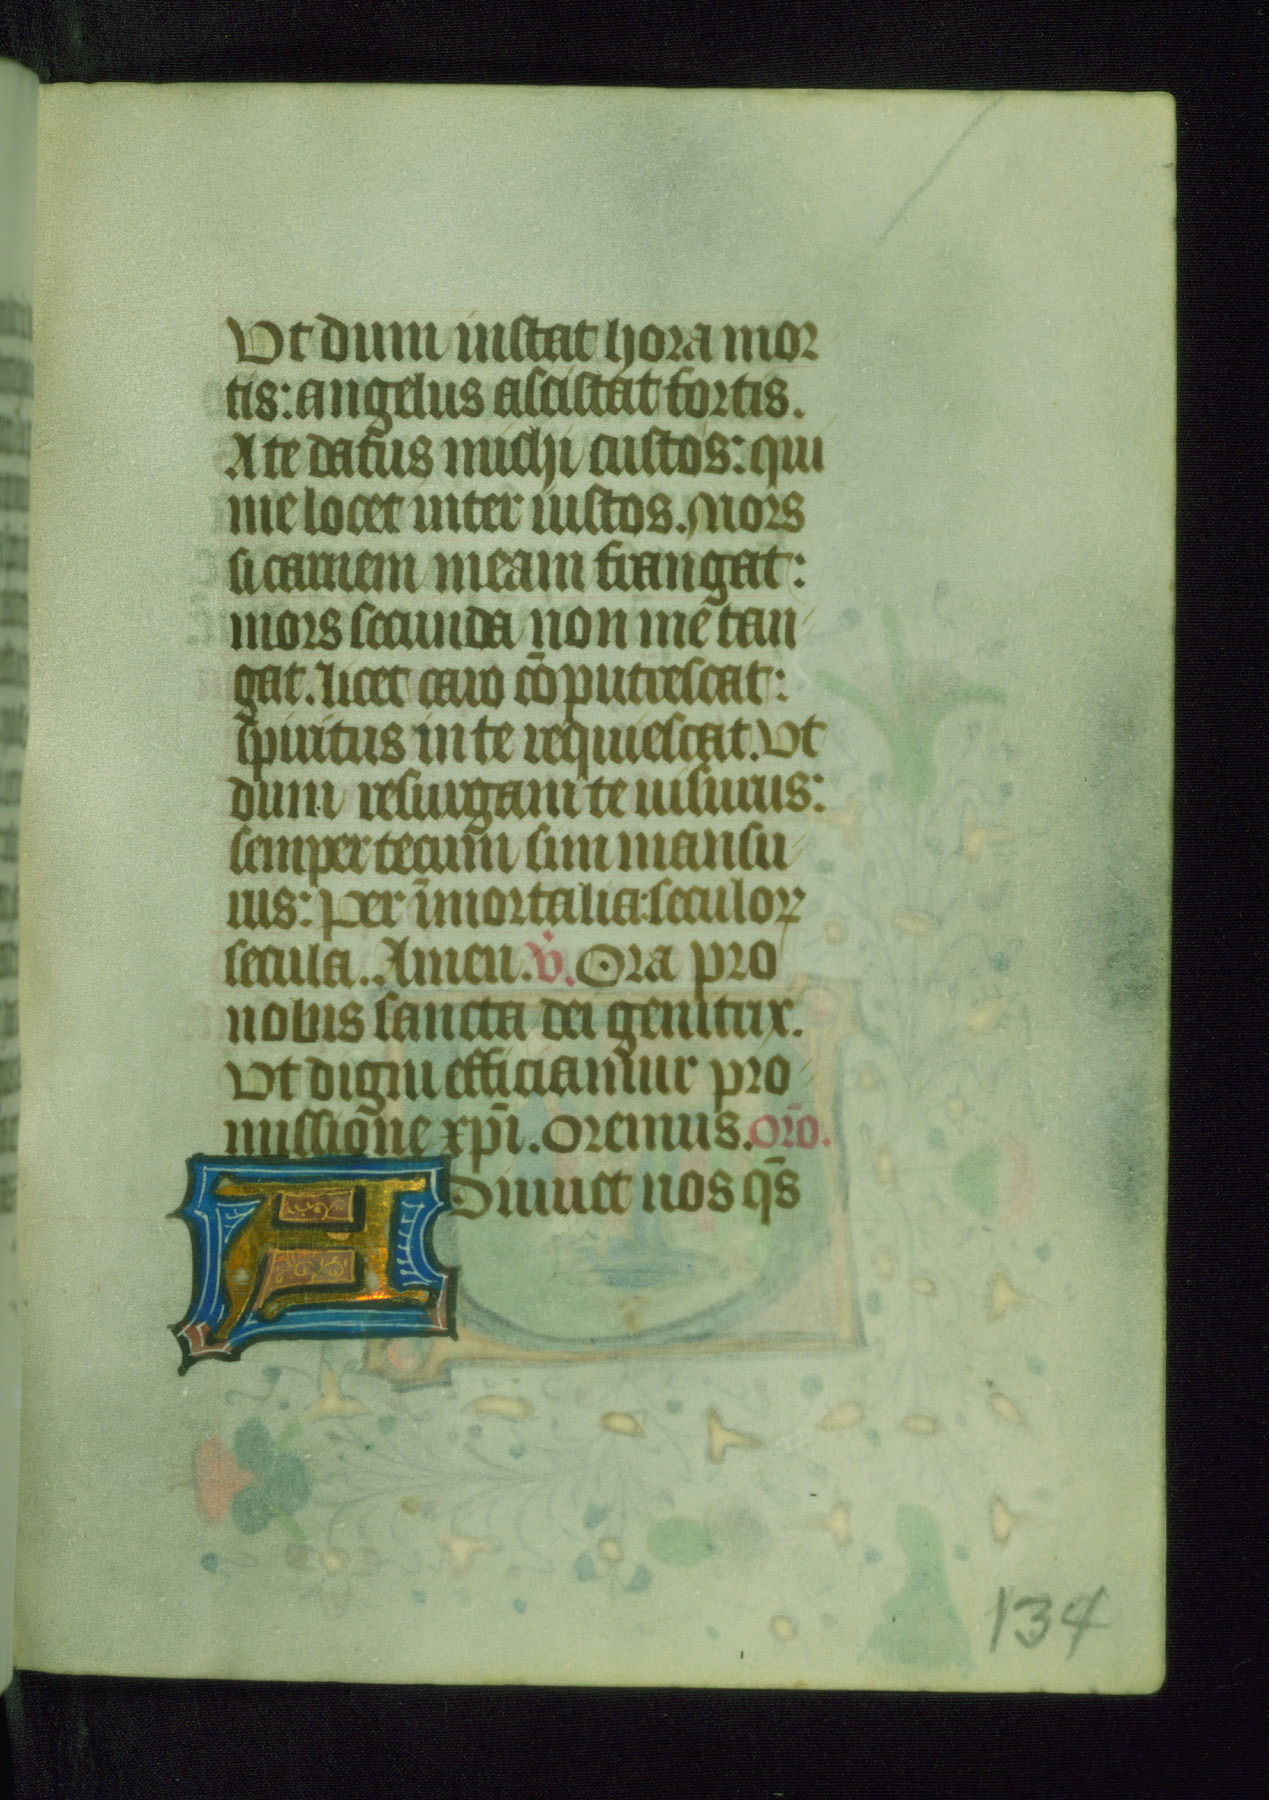 Ut dum instat hora mor
tis: angelus assistat fortis.
A te datus michi custos: qui
me locet inter iustos. Mors
si carnem meam frangat:
mors secunda non me tan
gat. licet caro cōputrescat:
spiritus in te requiescat. Ut
dum resurgam te uisurus:
semper tecum sim mansu
rus: Per īmortalia: seculoꝝ
secula. Amen. v̇. Ora pro
nobis sancta dei genitrix.
Ut digni efficiamur pro
missione xpī. Oremus. Orō.
Adiuuet nos qs̄
134